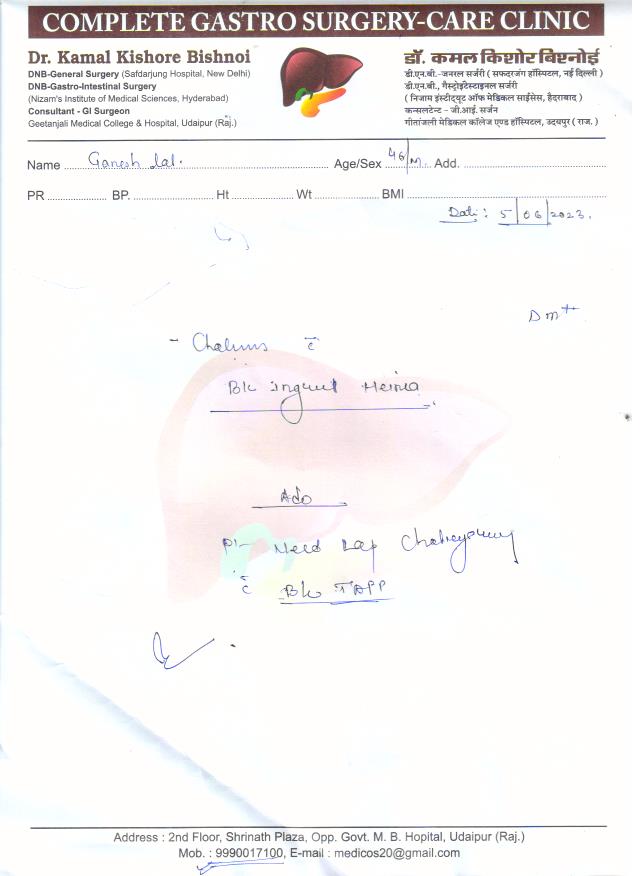 COMPLETE GASTRO SURGERY-CARE CLINIC
Dr. Kamal Kishore Bishnoi
DNB-General Surgery (Safdarjung Hospital, New Delhi)
DNB-Gastro-Intestinal Surgery
(Nizam's Institute of Medical Sciences, Hyderabad)
Consultant - GI Surgeon
Geetanjali Medical College & Hospital, Udaipur (Raj.)
डॉ. कमल किशोर बिश्नोई
डी.एन.बी.-जनरल सर्जरी ( सफदरजंग हॉस्पिटल, नई दिल्ली )
डी.एन.बी., गैस्ट्रोइंटेस्टाइनल सर्जरी
( निजाम इंस्टीट्यूट ऑफ मेडिकल साईंसेस, हैदराबाद )
कन्सलटेन्ट - जी.आई. सर्जन
गीतांजली मेडिकल कॉलेज एण्ड हॉस्पिटल, उदयपुर ( राज. )
Name Ganesh Lal. Age/Sex 46/M. Add.
PR BP. Ht Wt BMI
Date : 5/06/2023.
DM++
- c̄
B/L Hernia
Adv
Need Lap
c̄ B/L TAPP
Address : 2nd Floor, Shrinath Plaza, Opp. Govt. M. B. Hopital, Udaipur (Raj.)
Mob. : 9990017100, E-mail : medicos20@gmail.com